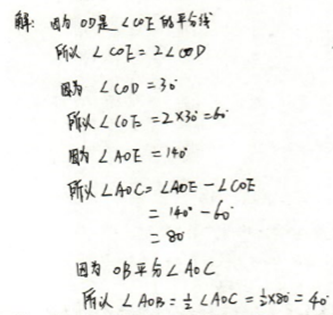 解: 因为 OD是∠COE的平分线
所以 ∠COE=2∠COD
因为 ∠COD=30°
所以 ∠COE=2×30°=60°
因为 ∠AOE=140°
所以∠AOC=∠AOE-∠COE
=140°-60°
=80°
因为 OB平分∠AOC
所以 ∠AOB=½∠AOC=½×80°=40°